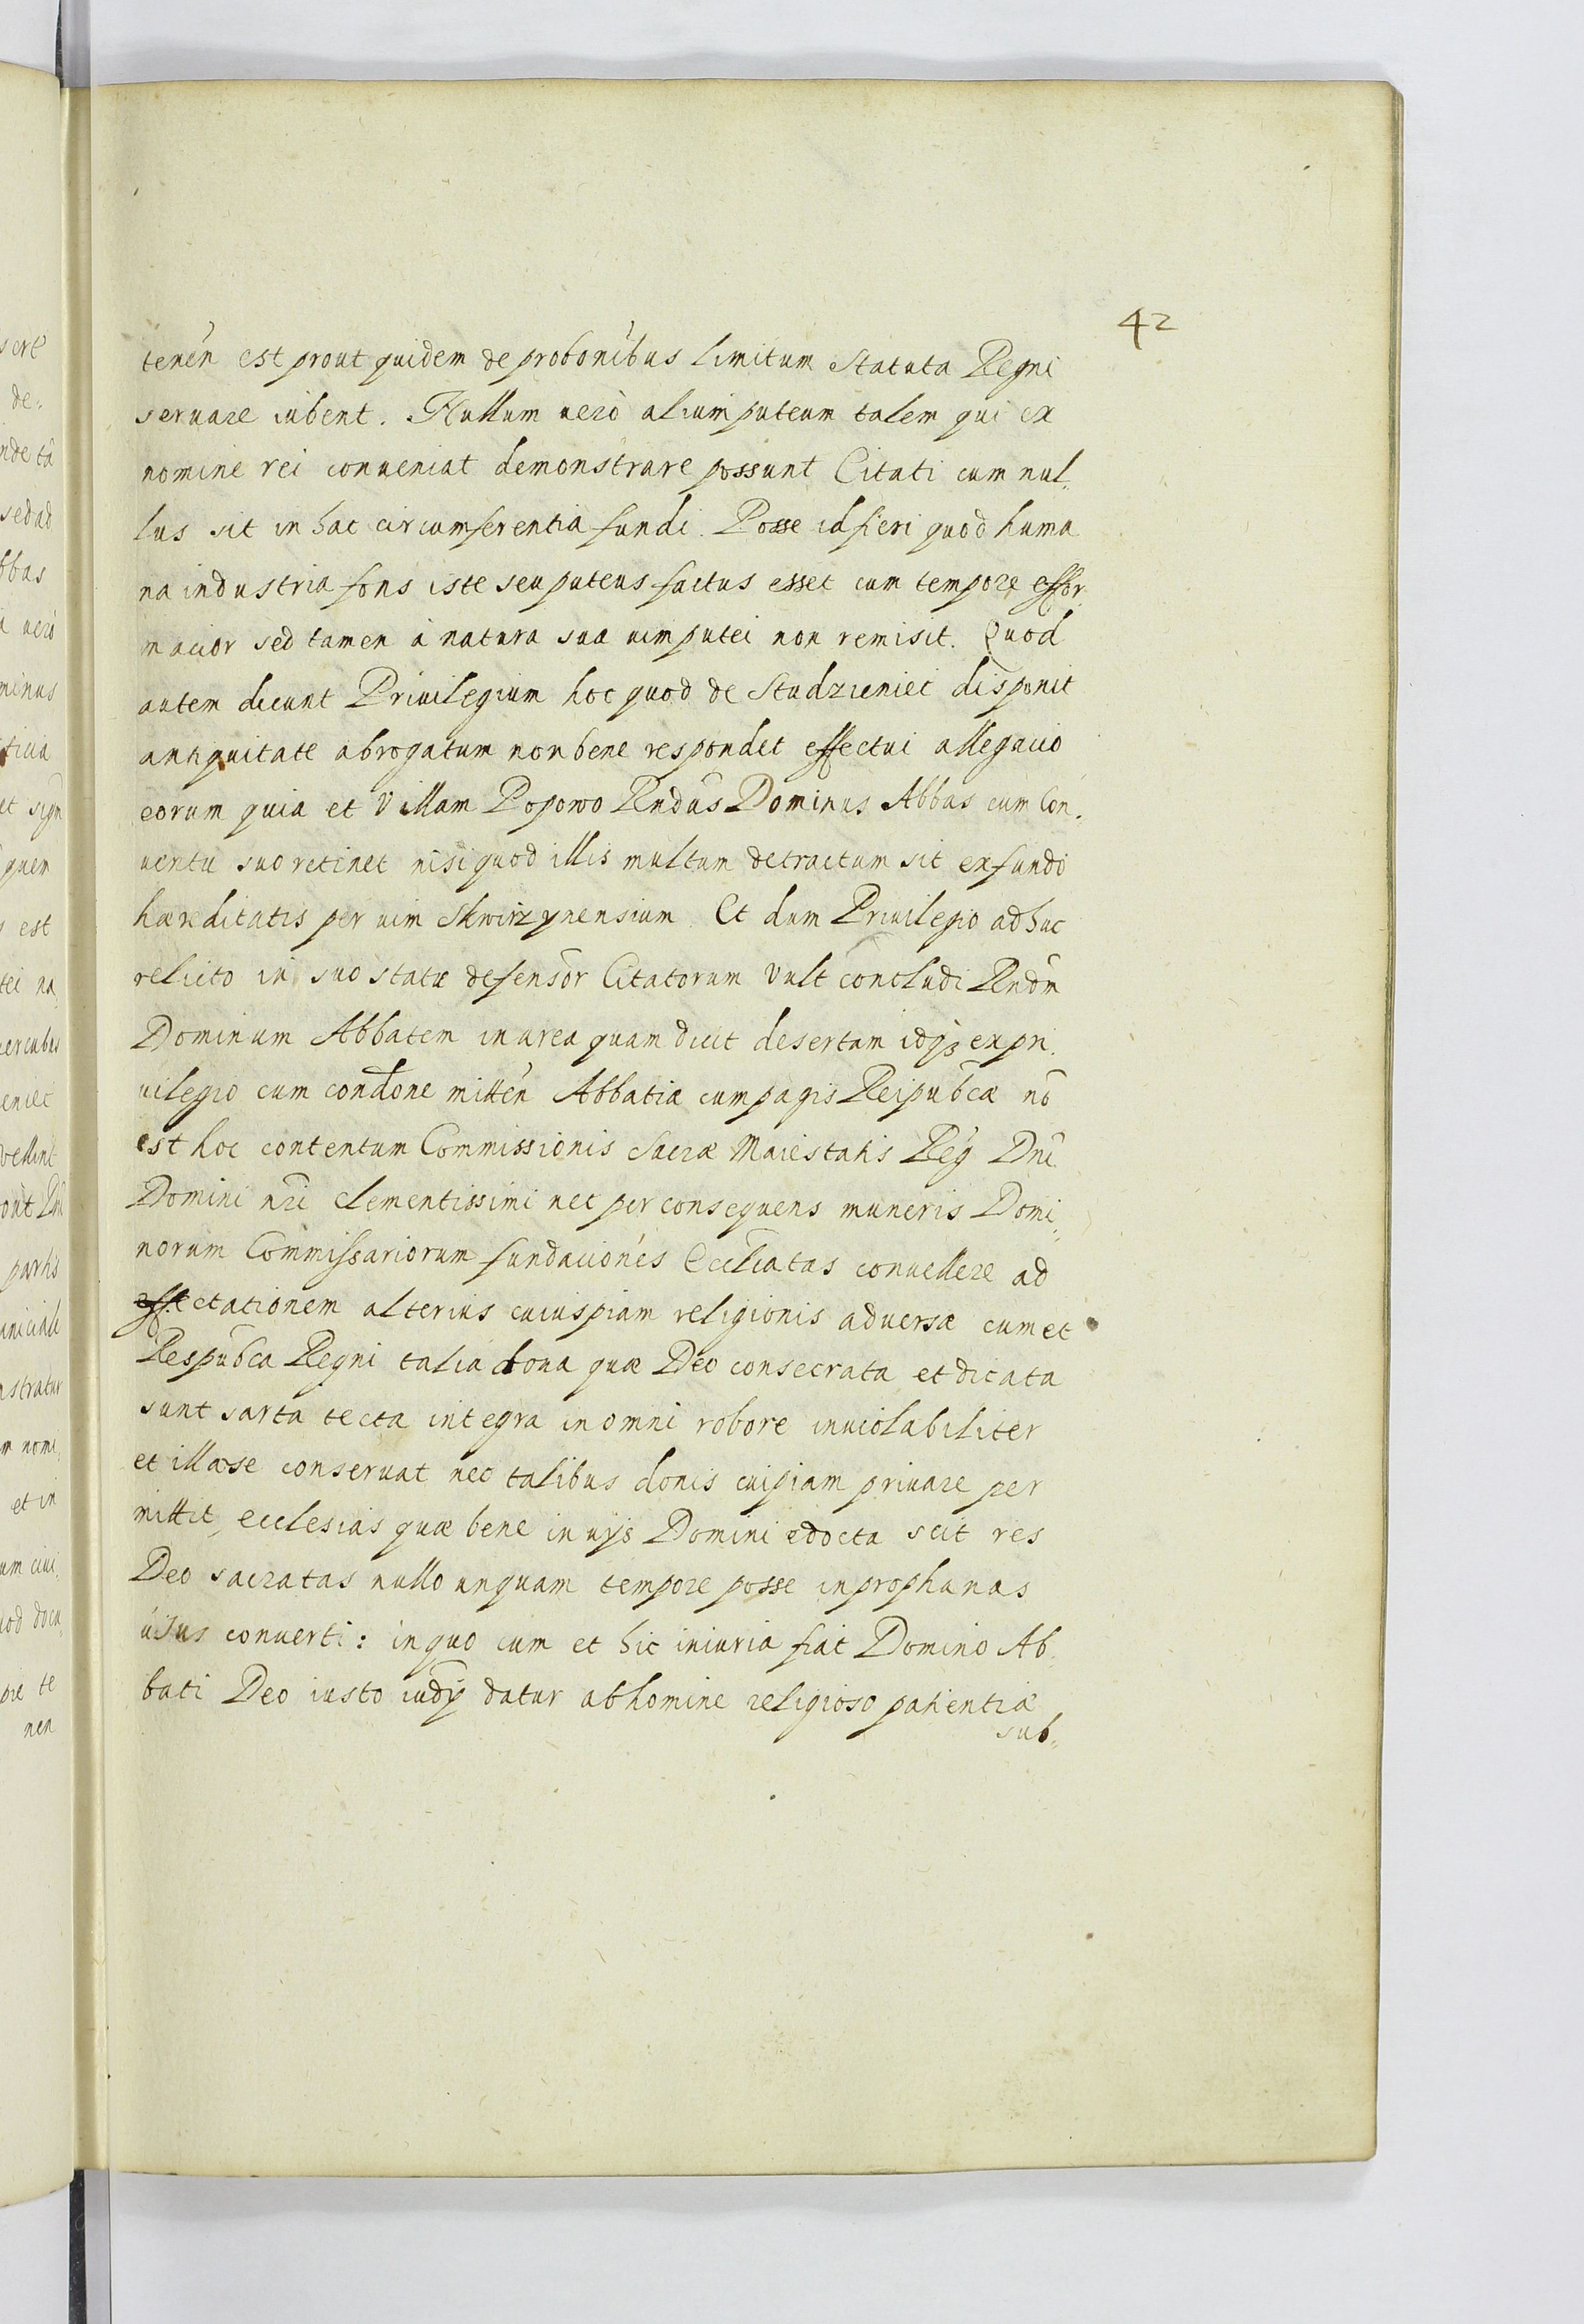 42
tenen̄ est prout quidem de probonībus limitum Statuta Regni
seruare iubent. Nullum uerò alium puteum talem qui ex
nomine rei conueniat demonstrare possunt Citati cum nul„
lus sit in hac circumferentia fundi. Posse id fieri quod huma
na industria fons iste seu puteus factus esset cum tempore effor
macior sed tamen à natura sua uim putei non remisit. Quod
autem dicunt Priuilegium hoc quod de Studzieniec disponit
antiquitate abrogatum non bene respondet effectui allegacio
eorum quia et Villam Popowo Rndūs Dominus Abbas cum Con„
uentu suo retinet nisi quod illis multum detractum sit ex fundo
hæreditatis per uim Skwirzynensium. Et dum Priuilegio adhuc
relicto in suo statu defensor Citatorum vult concludi Rndūm
Dominum Abbatem in area quam dicit desertam idqꝫ ex pri„
uilegio cum condōne mitten̄ Abbatiæ cum pagis Reipubcæ nō
est hoc contentum Commissionis Sacræ Maiestatis Reg Dni
Domini nri clementissimi nec per consequens muneris Domi„
norum Commissariorum fundaciones Eccliatas conuellere ad
affectationem alterius cuiuspiam religionis aduersæ cum et
Respubca Regni talia bona quæ Deo consecrata et dicata
sunt sarta tecta integra in omni robore inuiolabiliter
et illæse conseruat nec talibus donis cuipiam priuare per
mittit ecclesias quæ bene in uijs Domini edocta scit res
Deo sacratas nullo unquam tempore posse in prophanas
usus conuerti: in quo cum et hic iniuria fiat Domino Ab„
bati Deo iusto iudĳ datur ab homine religioso patientiæ
sub„